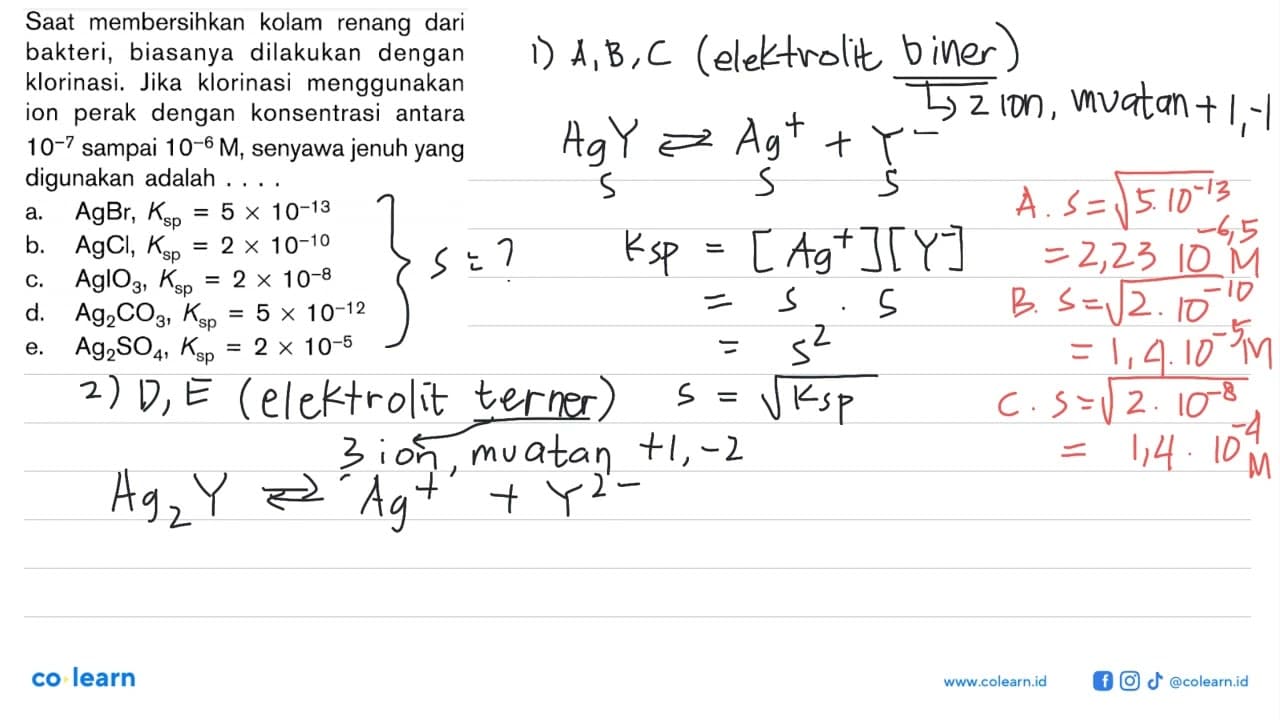 Saat membersihkan kolam renang dari
bakteri, biasanya dilakukan dengan
klorinasi. Jika klorinasi menggunakan
ion perak dengan konsentrasi antara
10⁻⁷ sampai 10⁻⁶ M, senyawa jenuh yang
digunakan adalah . . . .
a. AgBr, Ksp = 5 × 10⁻¹³
b. AgCl, Ksp = 2 × 10⁻¹⁰
c. AgIO₃, Ksp = 2 × 10⁻⁸
d. Ag₂CO₃, Ksp = 5 × 10⁻¹²
e. Ag₂SO₄, Ksp = 2 × 10⁻⁵
s = ?
1) A, B, C (elektrolit biner)
↳ 2 ion, muatan +1, -1
AgY ⇌ Ag⁺ + Y⁻
s s s
Ksp = [Ag⁺][Y⁻]
= s . s
= s²
s = √Ksp
A. s = √5.10⁻¹³
= 2,23 10⁻⁶,⁵ M
B. s = √2.10⁻¹⁰
= 1,4.10⁻⁵ M
C. s = √2.10⁻⁸
= 1,4.10⁻⁴ M
2) D, E (elektrolit terner)
3 ion, muatan +1, -2
Ag₂Y ⇌ Ag⁺ + Y²⁻
co learn
www.colearn.id
@colearn.id